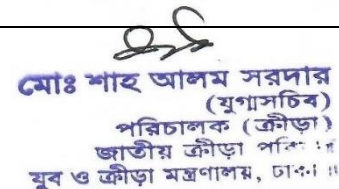 মোঃ শাহ আলম সরদার
(যুগ্মসচিব)
পরিচালক (ক্রীড়া)
জাতীয় ক্রীড়া
যুব ও ক্রীড়া মন্ত্রণালয়, ঢাকা।